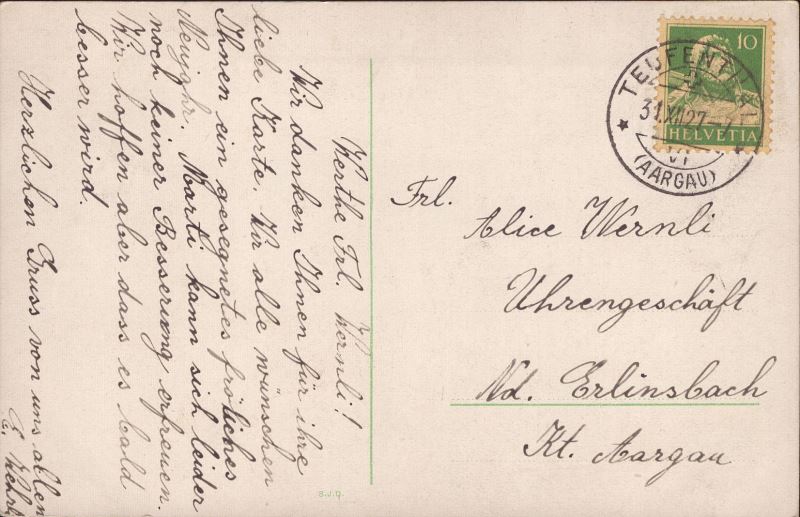 Werthe Frl. Wernli!
Wir danken Ihnen für ihre
liebe Karte. Wir alle wünschen
Ihnen ein gesegnetes fröhliches
Neujahr. Marti kann sich leider
noch keiner Besserung erfreuen.
Wir hoffen aber dass es bald
besser wird.
Herzlichen Gruss von uns allen
10
HELVETIA
TEUFENTHAL
31.XII.27
(AARGAU)
Frl.
Alice Wernli
Uhrengeschäft
Nd. Erlinsbach
Kt. Aargau
S.J.Q.